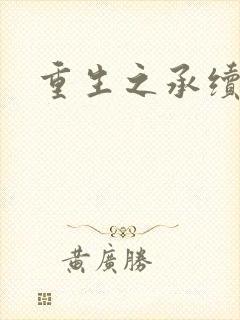 重生之承續
黃廣勝